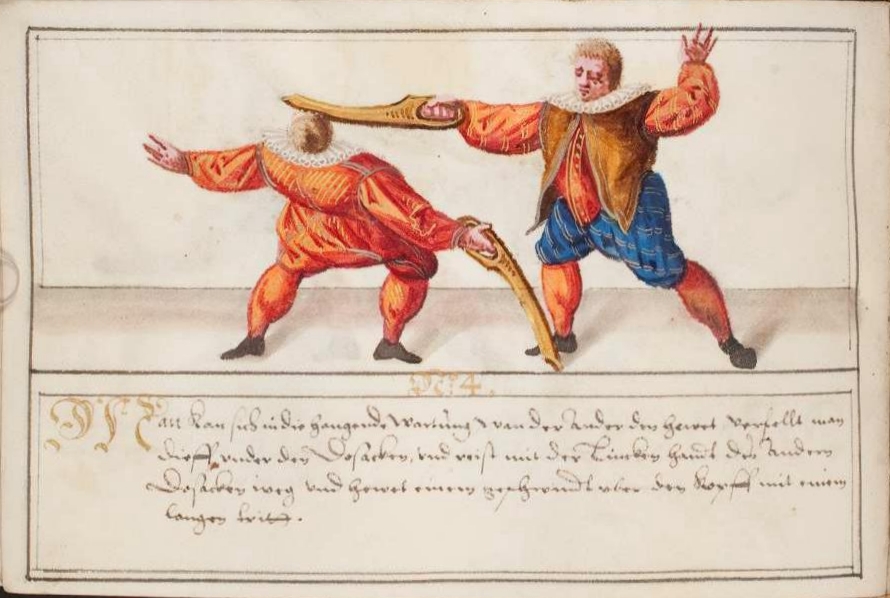 No 4.
Man kan sich in die hangende Wartung wan der ander den hewet verfellt man
dieff under den Dosacken, und reist mit der Lincken handt des andern
Dosacken weg und hewet einem geschwindt uber den Kopff mit einem
langen tritt.